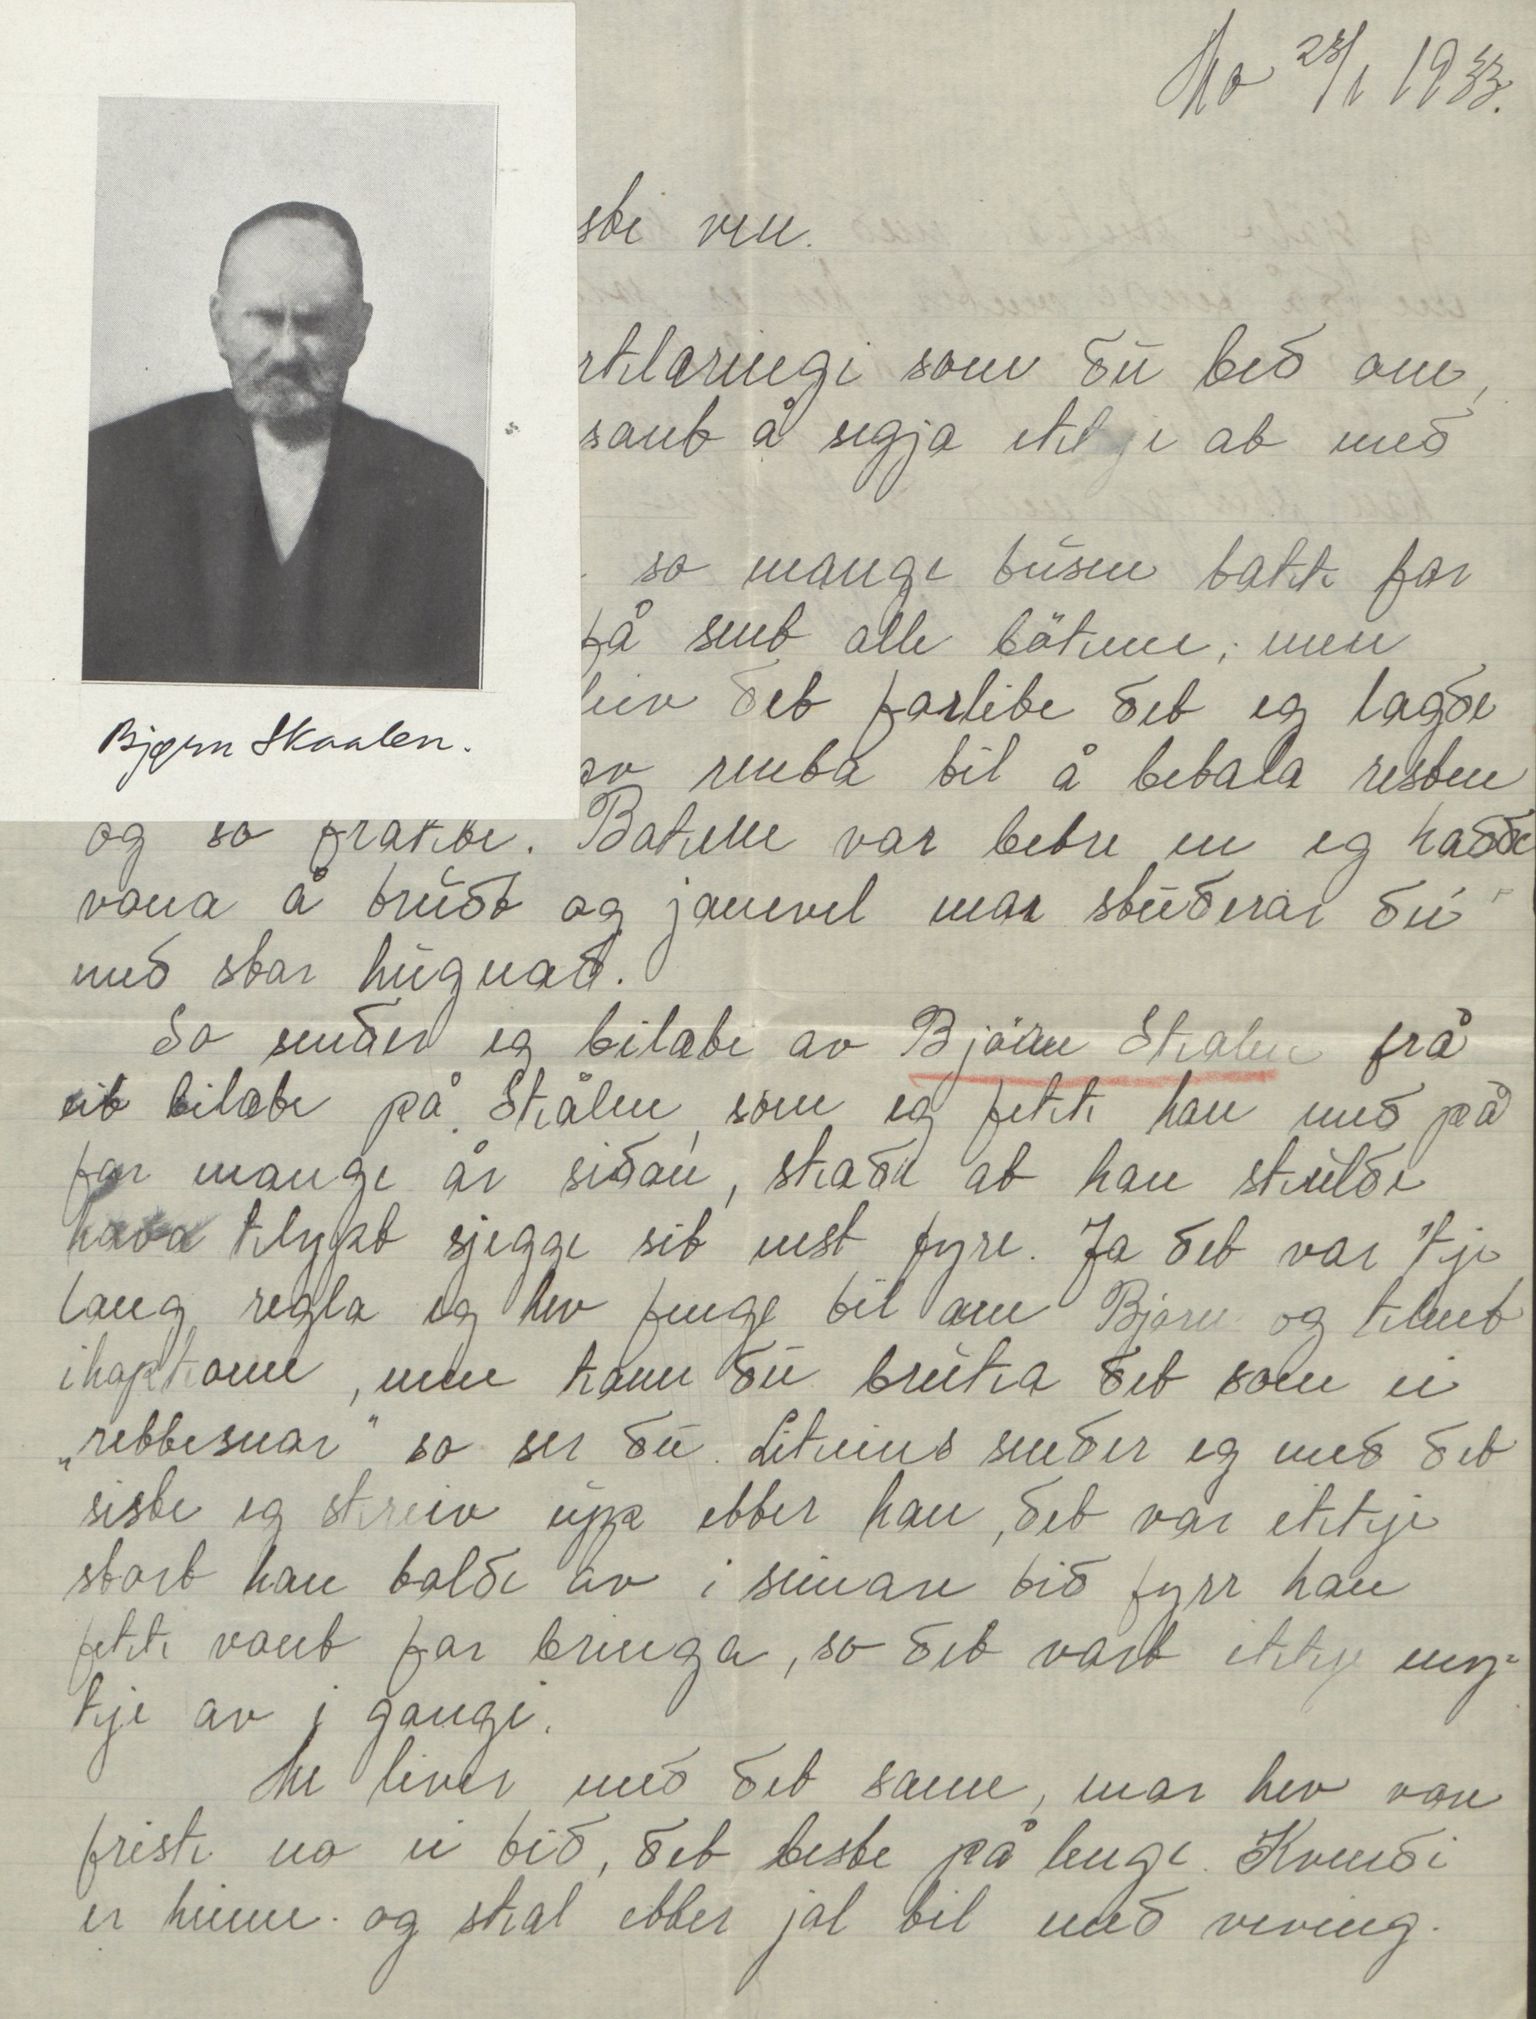 Mo 28/1 1933.
ste ven.
rklaringi som du bed om,
sant å segja ikkje at med
so mange tusen takk for
få sent alle bökene; men
det forlite det eg lagde
av renta til å betala resten
og so frakte. Bökene var betre en eg hadde
vona å trudt og jamvel mor studerar du
med stor hugnad.
So sender eg bilæte av Björn Skålen frå
eit bilæte på Skålen, som eg fekk han med på
for mange år sidan, skade at han skulde
hava klypt sjegge sit nest fyre. Ja det var kje
lang regla eg hev fenge til om Bjørn og klent
ihopkome, men kann du bruka det som ei
„rettesnor" so ser du. Likeins sender eg med det
siste eg skreiv upp etter han, det var ikkje
stort han tolde av i seinare tid fyrr han
fekk vont for bringa, so det vart ikkje my-
kje av i gongi.
Me liver med det same, mor hev vore
frisk no ei tid, det beste på lenge. Kvendi
er heime og skal etter jol til med veving.
Bjørn Skaalen.